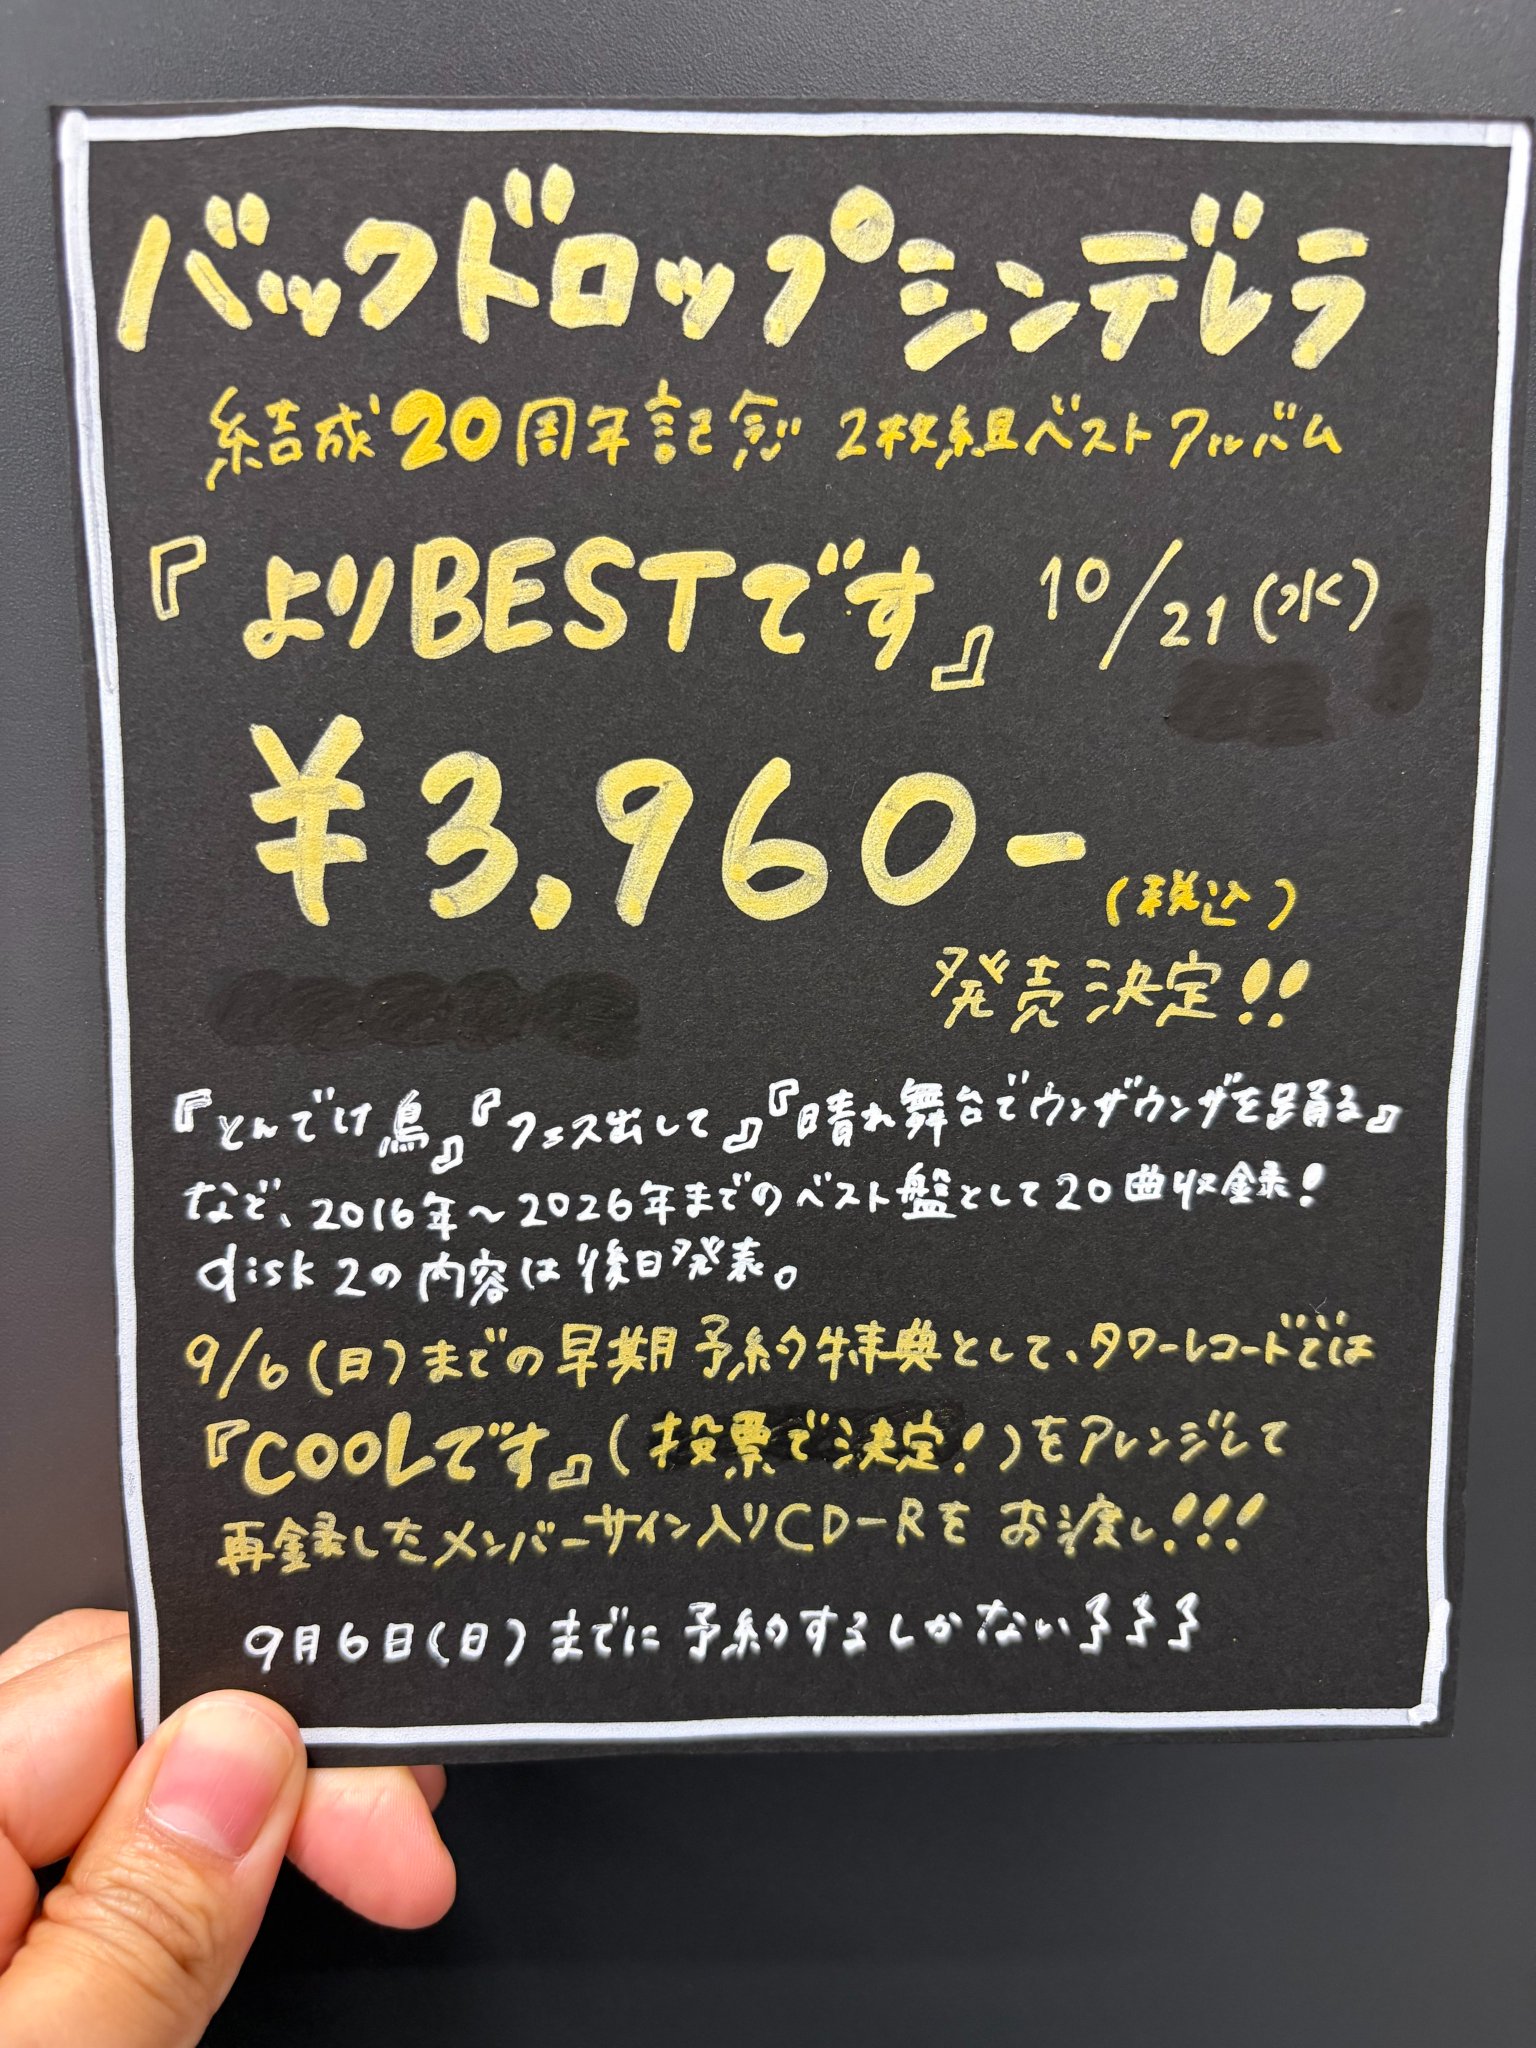 バックドロップシンデレラ
結成20周年記念 2枚組ベストアルバム
『よりBESTです』 10/21(水)
¥3,960-
(税込)
発売決定!!
『とんでけ鳥』『フェス出して』『晴れ舞台でウンザウンザを踊る』
など、2016年〜2026年までのベスト盤として20曲収録!
disk2の内容は後日発表。
9/6(日)までの早期予約特典として、タワーレコードでは
『COOLです』(投票で決定!)をアレンジして
再録したメンバーサイン入りCD-Rをお渡し!!!
9月6日(日)までに予約するしかない